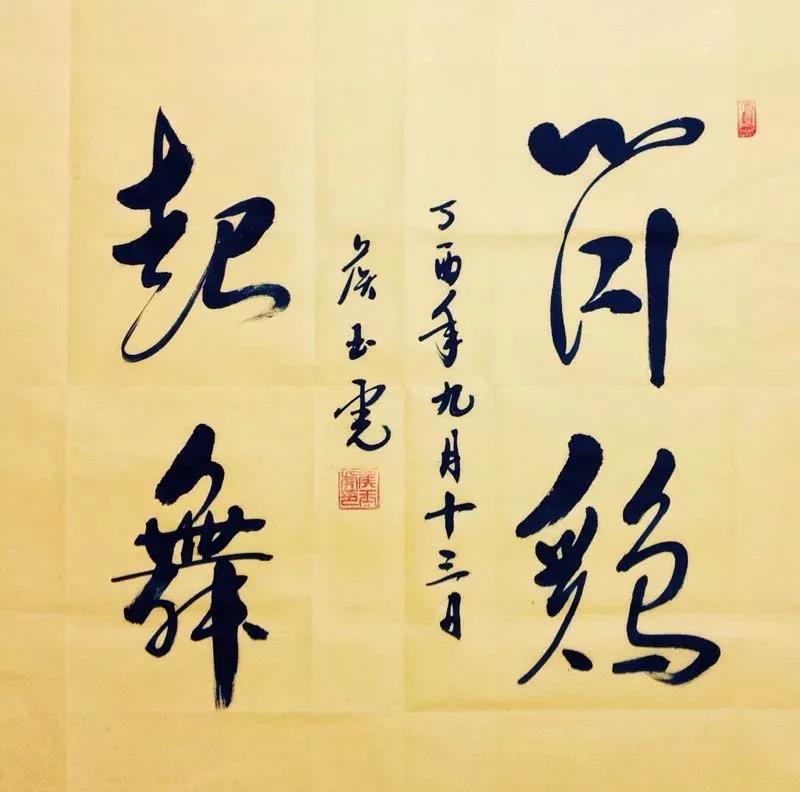 聞鷄
起舞
丁酉年九月十三日
侯玉